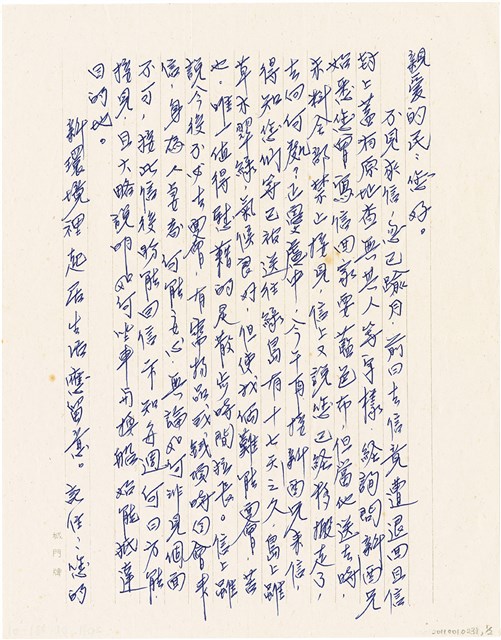 親愛的民：您好。
不見來信，忽已踰月，前回去信竟遭退回且信
封上蓋有原地查無其人等字樣，經詢問新兄
始悉您曾寫信回家要藍色布，但當他送去時，
全部禁止接見，信上又說您已經移搬走了，
去向何處？正憂慮中，今午再接新兄來信，
得知您們等已被送往綠島有十七天之久，島上雖
草木翠綠，氣候良好，但使我倆難能面會，苦
也，唯一值得慰藉的是散步時間較長。信上雖
說今後不必去面會，有需物品或錢項時自會來
信，身為人妻者何能忍心，無論如何非見個面
不可，接此信後盼能回信示知每週何日方能
接見，且大略說明如何坐車再換船始能抵達
目的地。
新環境裡起居生活應留意。交保：您的